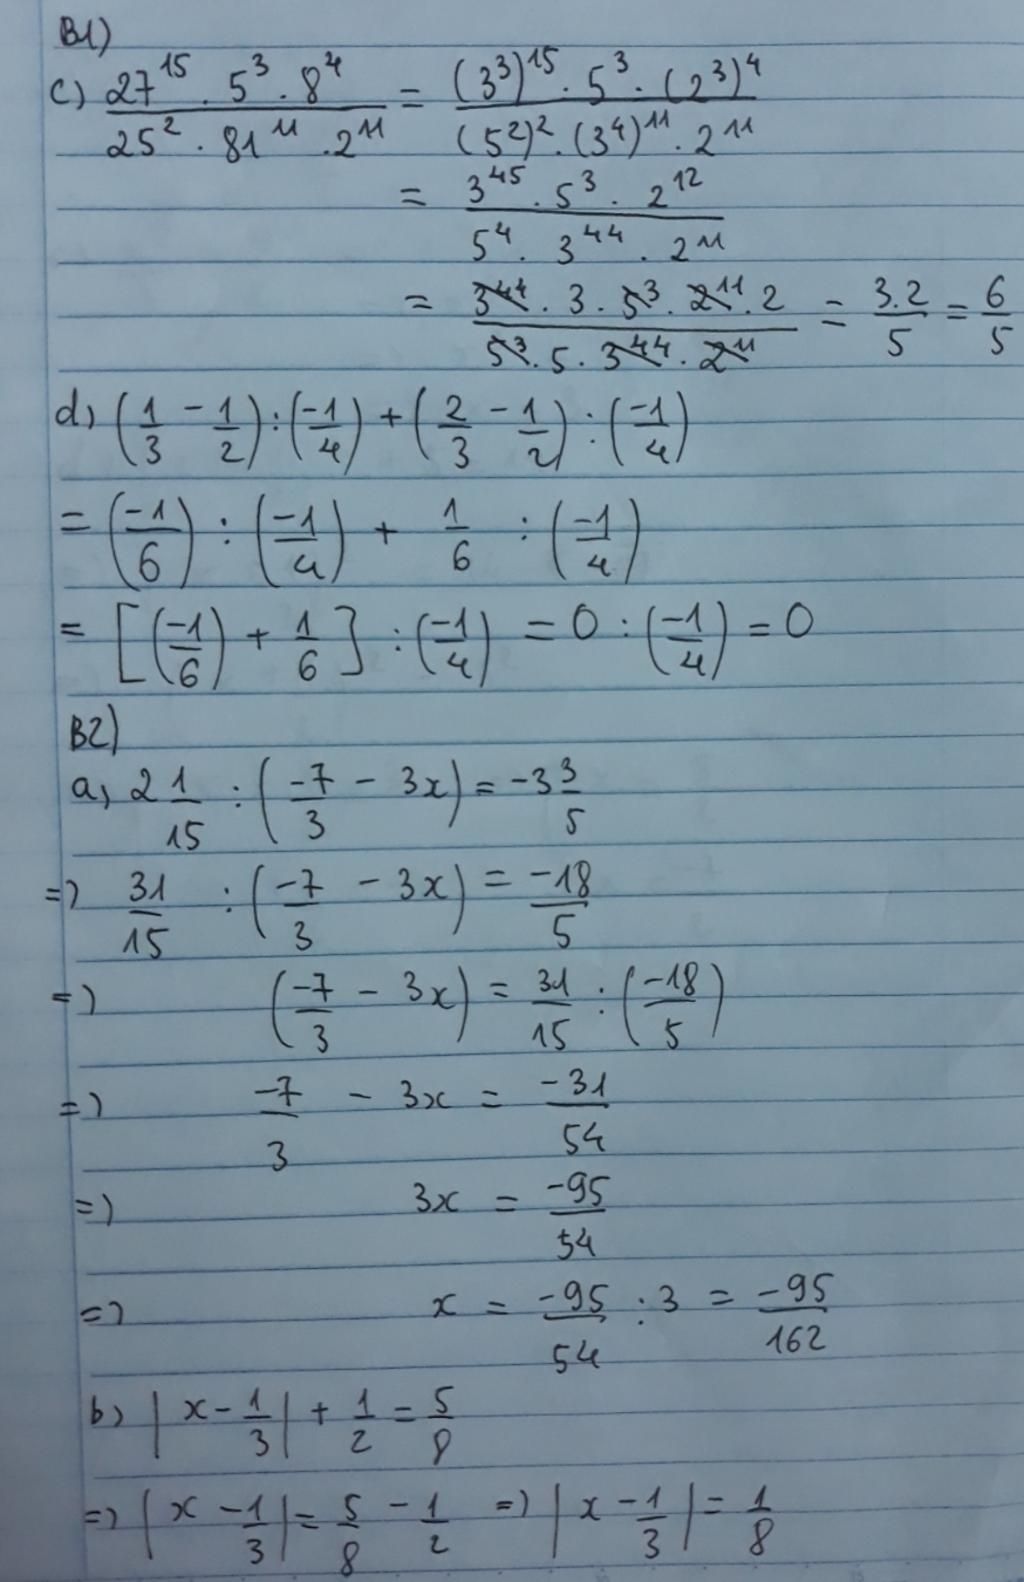 B1)
c) 27^15 . 5^3 . 8^4 / 25^2 . 81^11 . 2^11 = (3^3)^15 . 5^3 . (2^3)^4 / (5^2)^2 . (3^4)^11 . 2^11
= 3^45 . 5^3 . 2^12 / 5^4 . 3^44 . 2^11
= 3^44 . 3 . 5^3 . 2^11 . 2 / 5^3 . 5 . 3^44 . 2^11 = 3.2/5 = 6/5
d) (1/3 - 1/2) : (-1/4) + (2/3 - 1/2) : (-1/4)
= (-1/6) : (-1/4) + 1/6 : (-1/4)
= [(-1/6) + 1/6] : (-1/4) = 0 : (-1/4) = 0
B2)
a) 2 1/15 : (-7/3 - 3x) = -3 3/5
=) 31/15 : (-7/3 - 3x) = -18/5
=) (-7/3 - 3x) = 31/15 : (-18/5)
=) -7/3 - 3x = -31/54
=) 3x = -95/54
=) x = -95/54 : 3 = -95/162
b) |x - 1/3| + 1/2 = 5/8
=) |x - 1/3| = 5/8 - 1/2 =) |x - 1/3| = 1/8